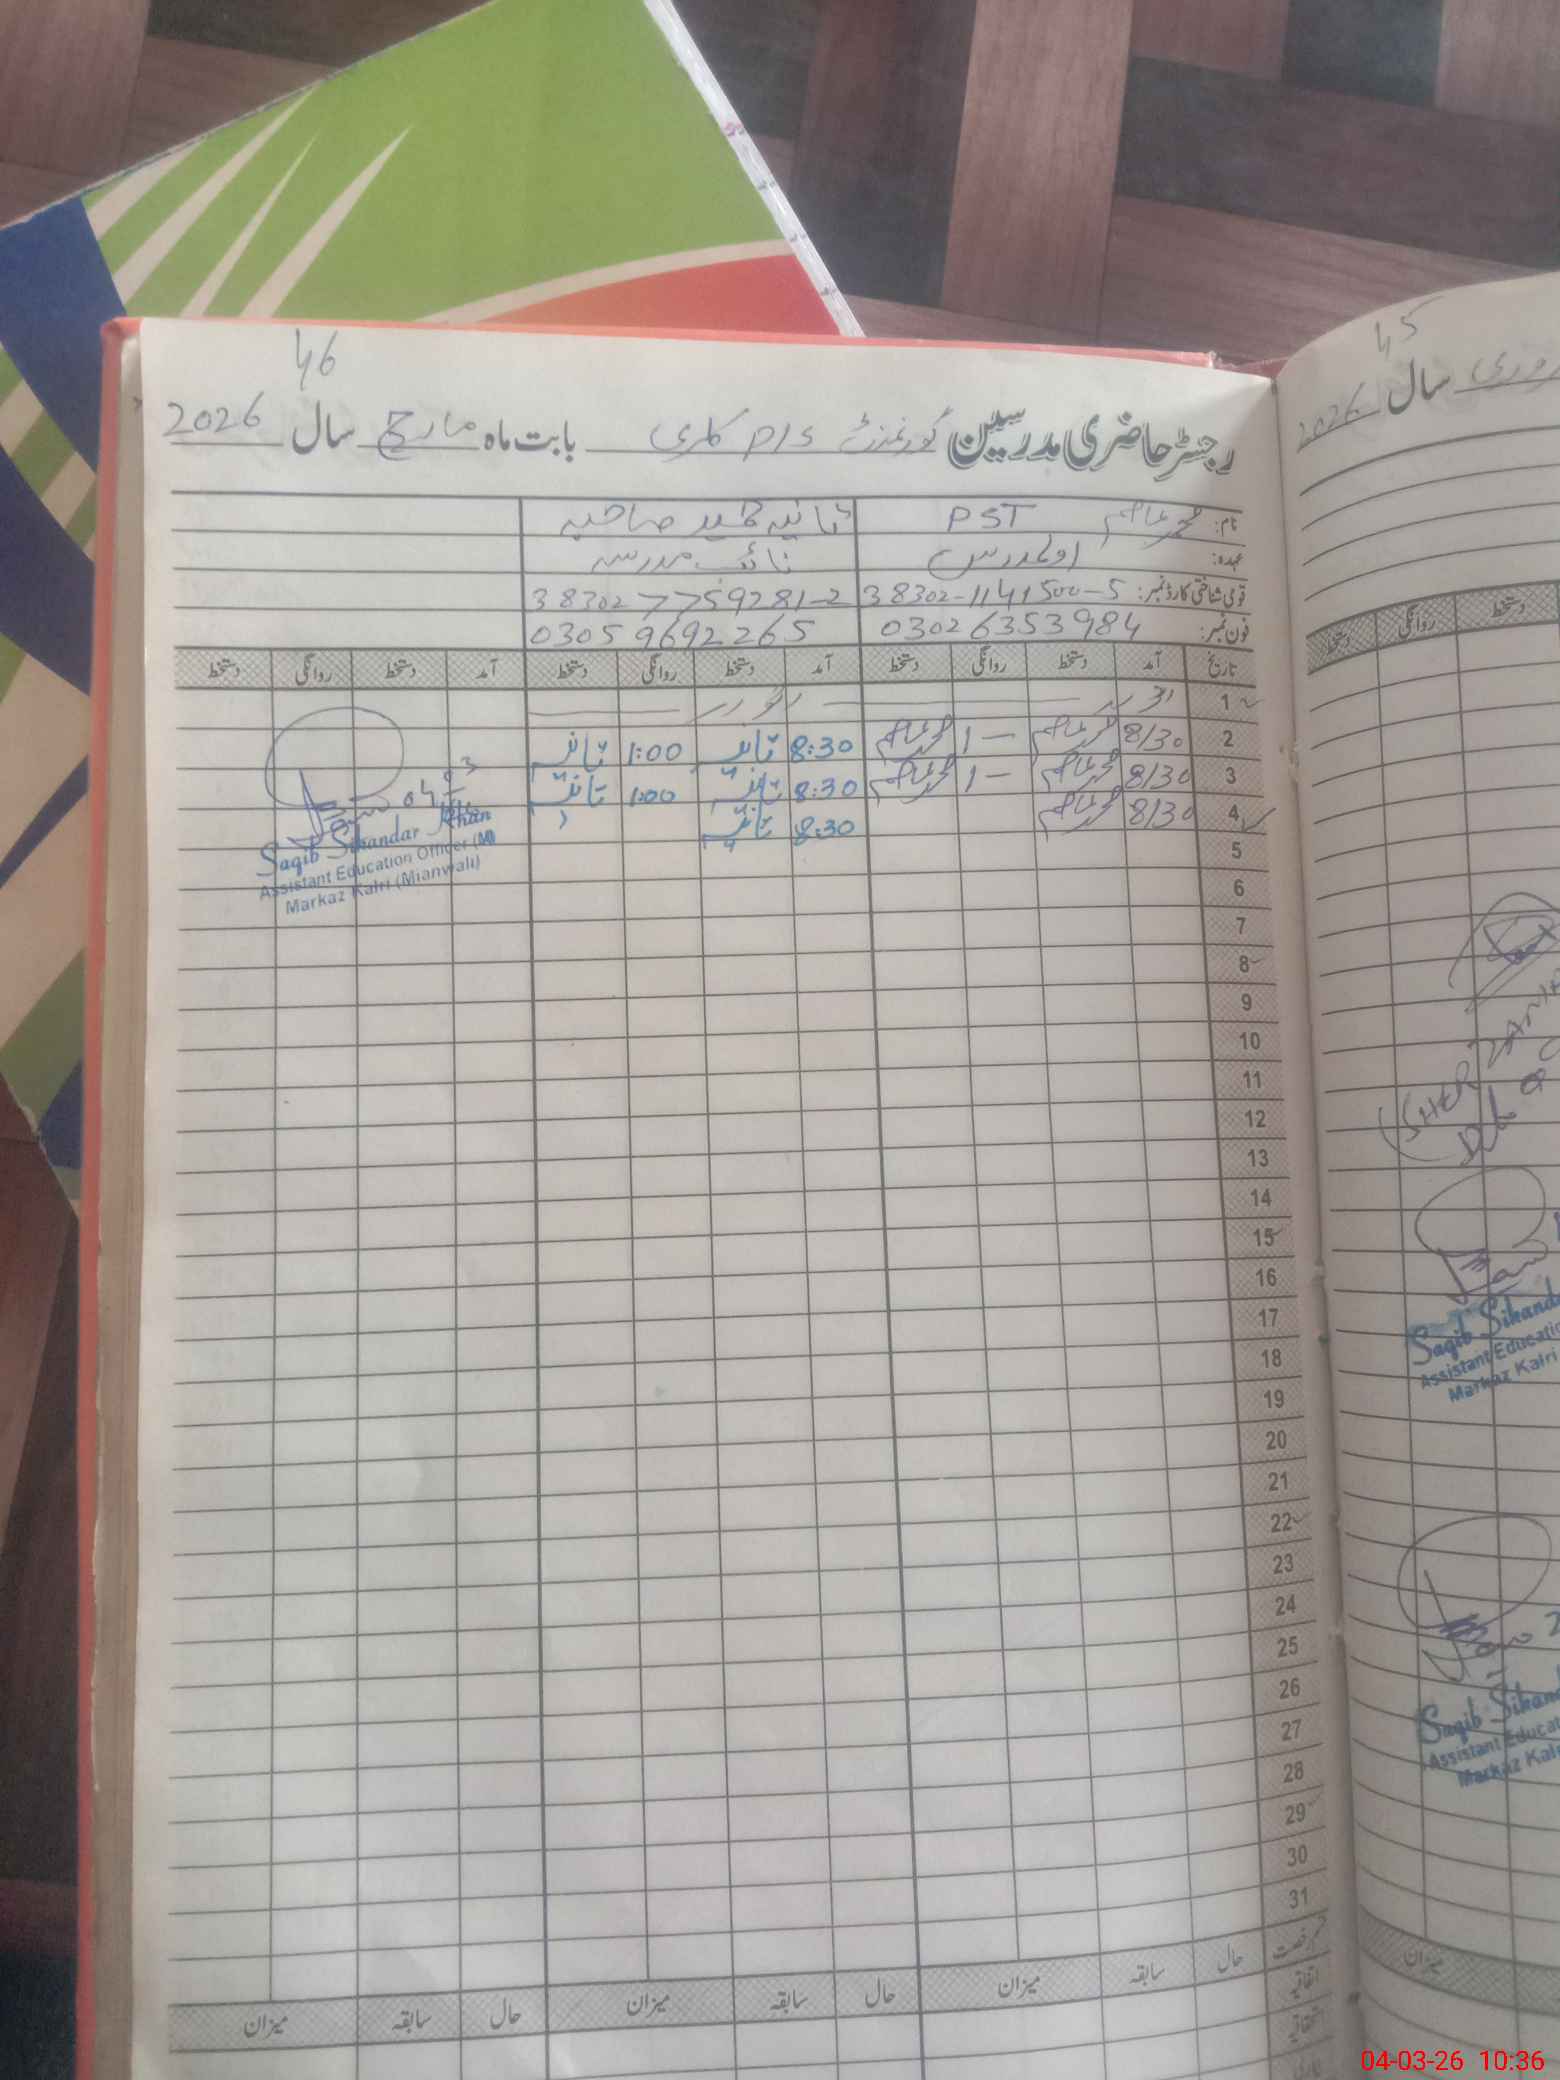 46
رجسٹر حاضری مدرسین گورنمنٹ P/S کلری بابت ماہ مارچ سال 2026
نام: محمد عاصم PST ثانیہ حمید صاحبہ
عہدہ: اول مدرس نائب مدرسہ
قومی شناختی کارڈ نمبر: 38302-1141500-5 38302 7759281-2
فون نمبر: 03026353984 03059692265
تاریخ آمد دستخط روانگی دستخط آمد دستخط روانگی دستخط آمد دستخط روانگی دستخط
1 اتوار اتوار
2 8/30 محمد عاصم 1 — محمد عاصم 8:30 ثانیہ 1:00 ثانیہ
3 8/30 محمد عاصم 1 — محمد عاصم 8:30 ثانیہ 1:00 ثانیہ
4 8/30 محمد عاصم 8:30 ثانیہ
04
03
Saqib Sikandar Khan
Assistant Education Officer (M)
Markaz Kalri (Mianwali)
5
6
7
8
9
10
11
12
13
14
15
16
17
18
19
20
21
22
23
24
25
26
27
28
29
30
31
حال سابقہ میزان حال سابقہ میزان حال سابقہ میزان
اتفاقیہ
استحقاقیہ
45
سال 2026
دستخط روانگی دستخط
Saqib Sikand
Assistant Educatio
Markaz Kalri
Saqib Sikand
Assistant Educat
Markaz Kalr
میزان
04-03-26 10:36